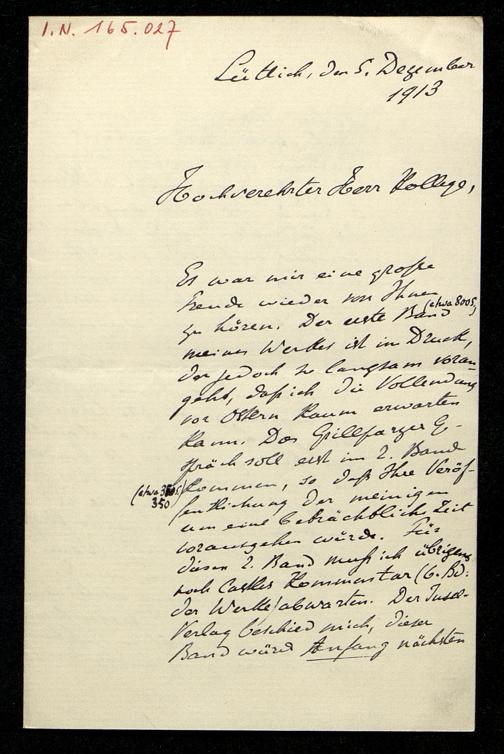 I.N. 165.027
Lüttich, den 5. Dezember
1913
Hochverehrter Herr Kollege,
Es war mir eine große
Freude wieder von Ihnen
zu hören. Der erste Band (etwa 800 S.)
meines Werkes ist im Druck,
der jedoch so langsam voran-
geht, daß ich die Vollendung
vor Ostern kaum erwarten
kann. Das Grillparzer Ge-
spräch soll erst im 2. Band
(etwa 350 S.) kommen, so daß Ihre Veröf-
350
fentlichung der meinigen
um eine beträchtliche Zeit
vorausgehen würde. Für
diesen 2. Band muß ich übrigens
noch Castles Kommentar (6. Bd.
der Werke) abwarten. Der Insel-
Verlag beschied mich, dieser
Band würde Anfang nächsten